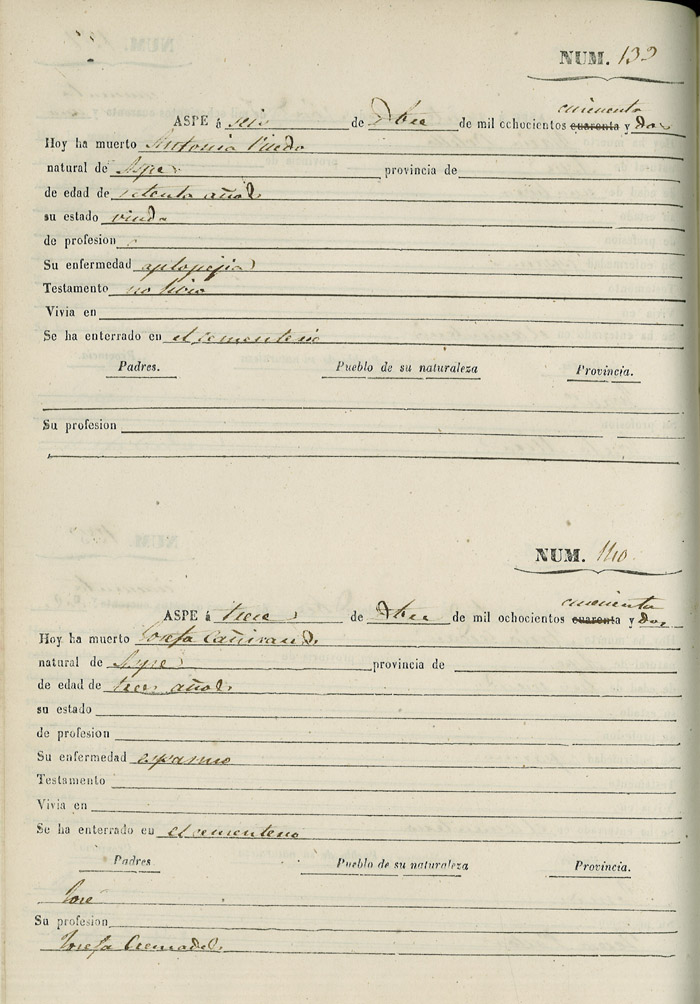 NUM. 139
cincuenta
ASPE á seis de de mil ochocientos cuarenta y dos
Hoy ha muerto Antonia
natural de Aspe provincia de
de edad de setenta años
su estado viuda
de profesion
Su enfermedad aplopejia
Testamento no hizo
Vivia en
Se ha enterrado en el cementerio
Padres. Pueblo de su naturaleza Provincia.
Su profesion
NUM. 140
cincuenta
ASPE á trece de de mil ochocientos cuarenta y dos
Hoy ha muerto Josefa Cañizares
natural de Aspe provincia de
de edad de tres años
su estado
de profesion
Su enfermedad espasmo
Testamento
Vivia en
Se ha enterrado en el cementerio
Padres Pueblo de su naturaleza Provincia.
José
Su profesion
Josefa Cremades